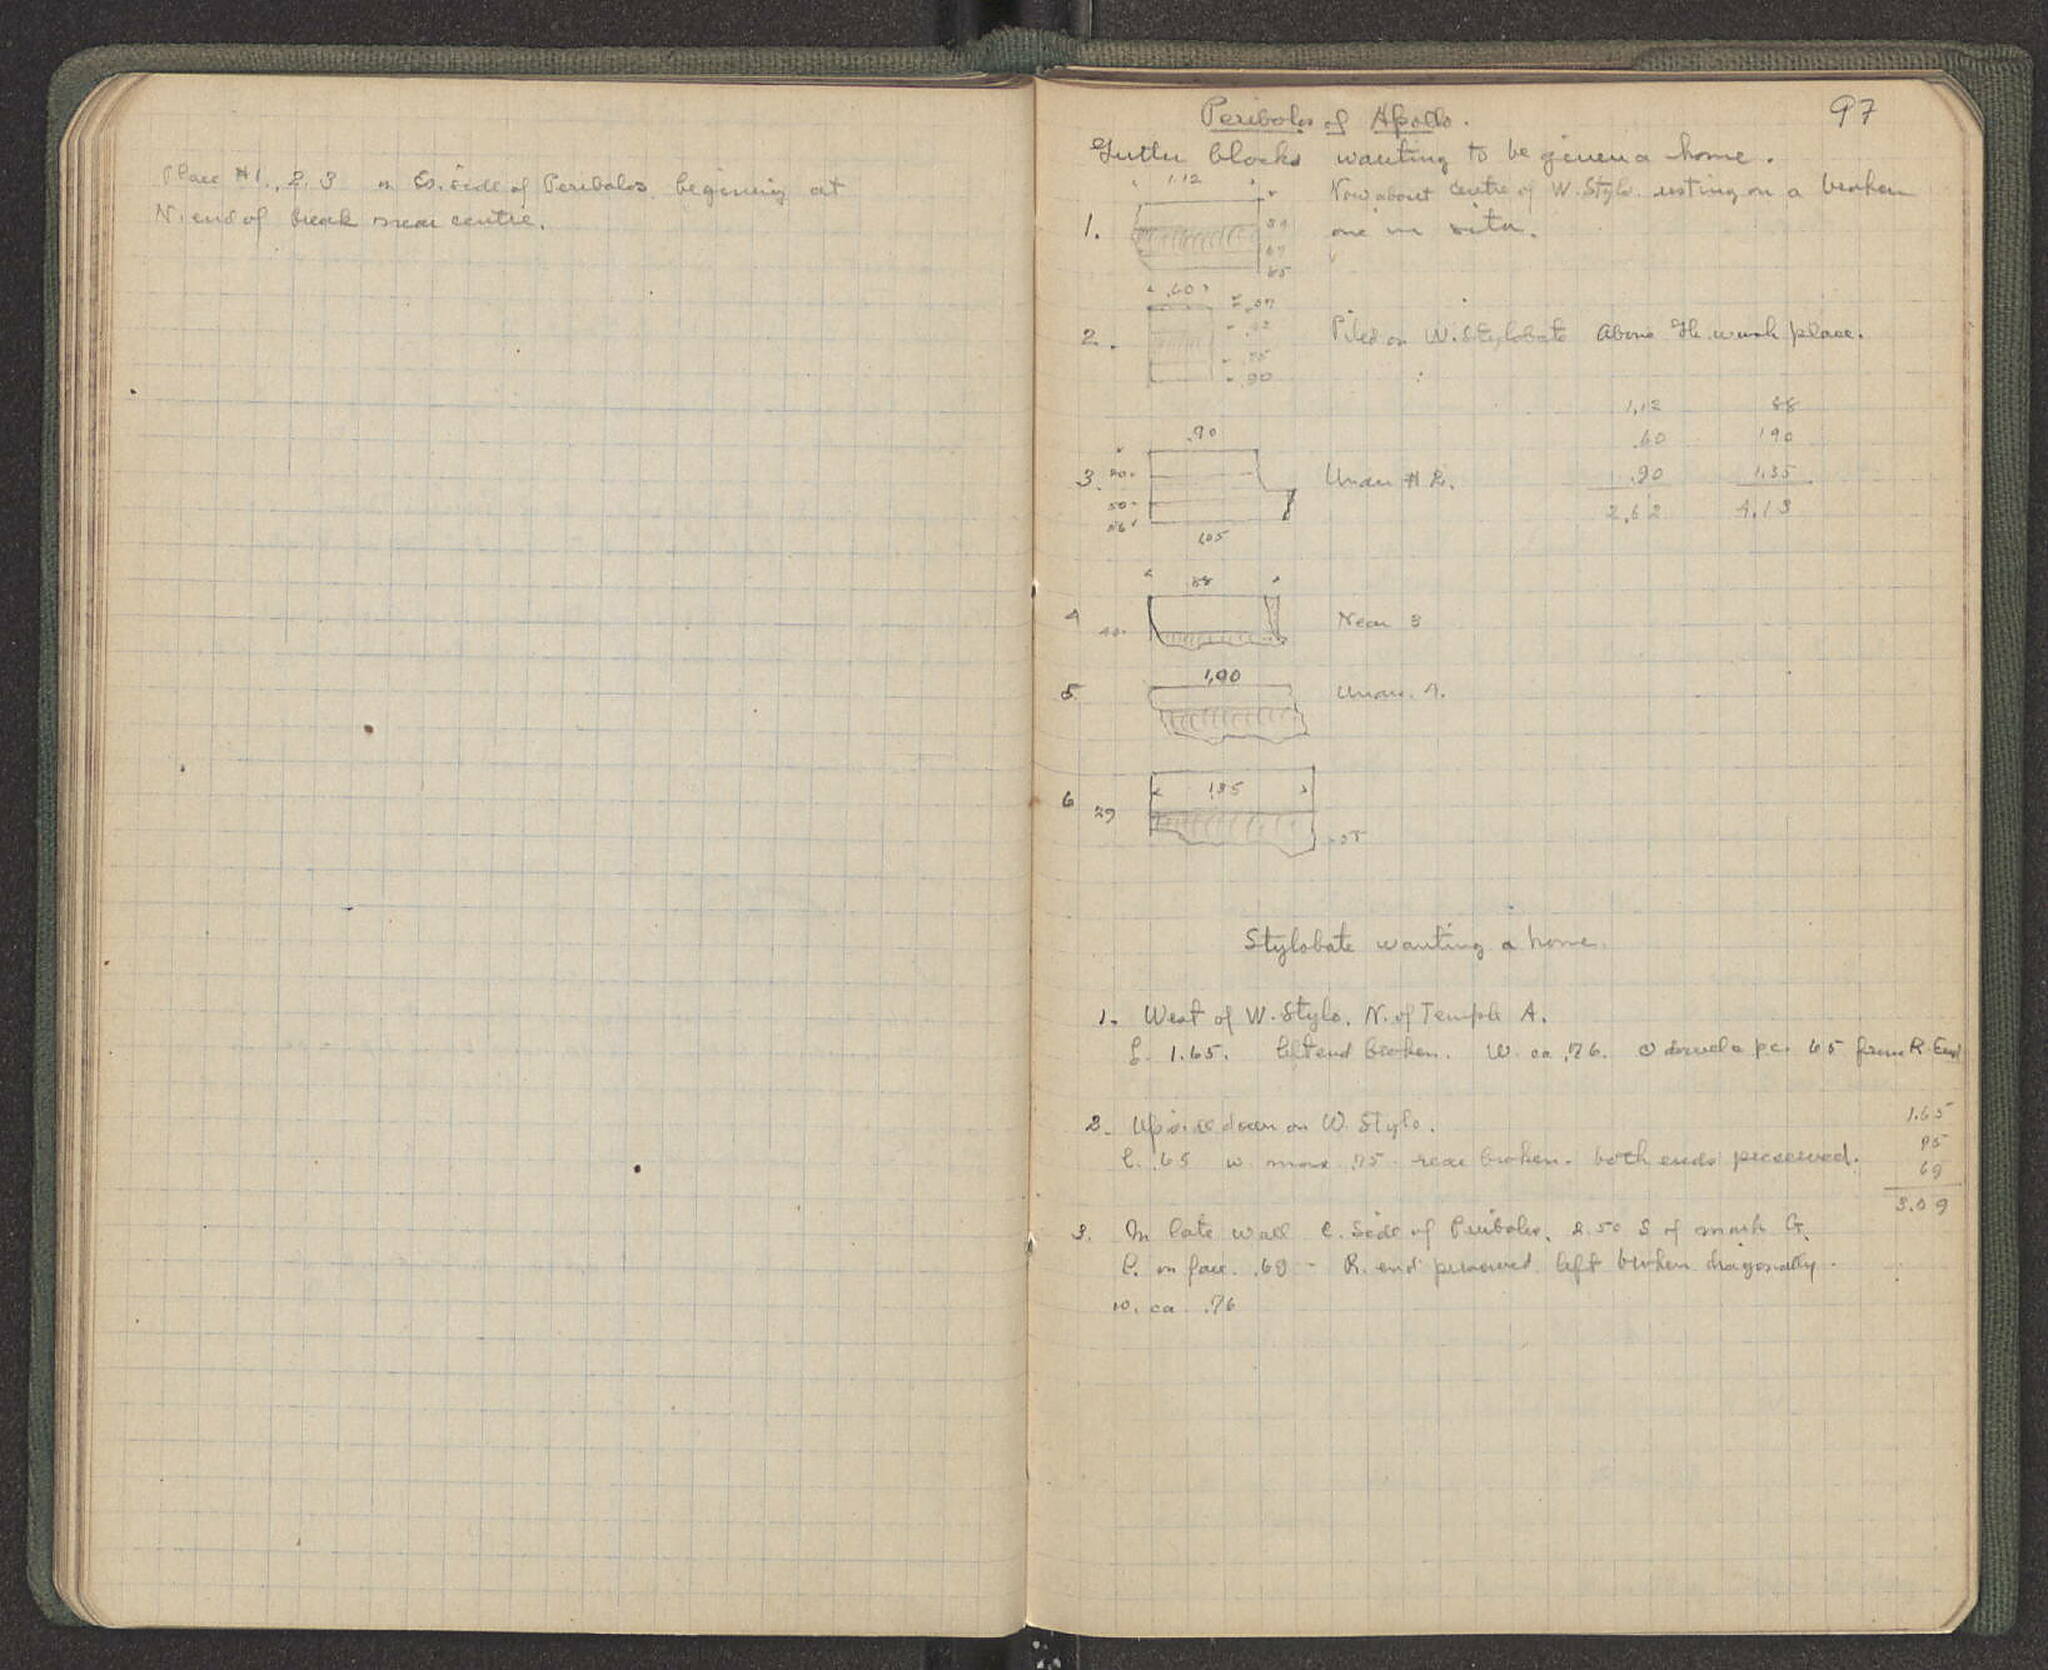 Place #1, 2, 3 on Es. side of Peribolos begining at
N. end of break near centre.
97
Peribolos of Apollo.
Gutter blocks wanting to be given a home.
1.12
1.
Now about centre of W. Stylo. resting on a broken
one in situ.
65
.60
2.
.90
Piled on W. Stylobate above the wash place.
1.12 88
.60 190
.90 1.35
2.62 4.13
.90
3.
20
50
56
1.05
Under #2.
88
4
Near 3
1.90
5.
Under 4.
6
29
1.35
Stylobate wanting a home.
1. West of W. Stylo. N. of Temple A.
L. 1.65. left end broken. W. ca .76. 65 from R. End
2. Upside down on W. Stylo.
L. .65 w. max .75 rear broken. both ends preserved.
1.65
69
3.09
3. In late wall E. side of Peribolos. 2.50 S of mark G.
L. on face .69 - R. end preserved left broken diagonally.
w. ca .76